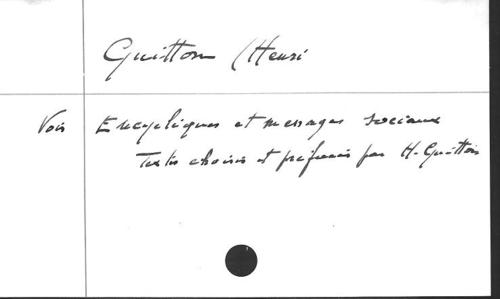 Guitton (Henri
Voir Encycliques et messages sociaux
Textes choisis et préfacés par H. Guitton